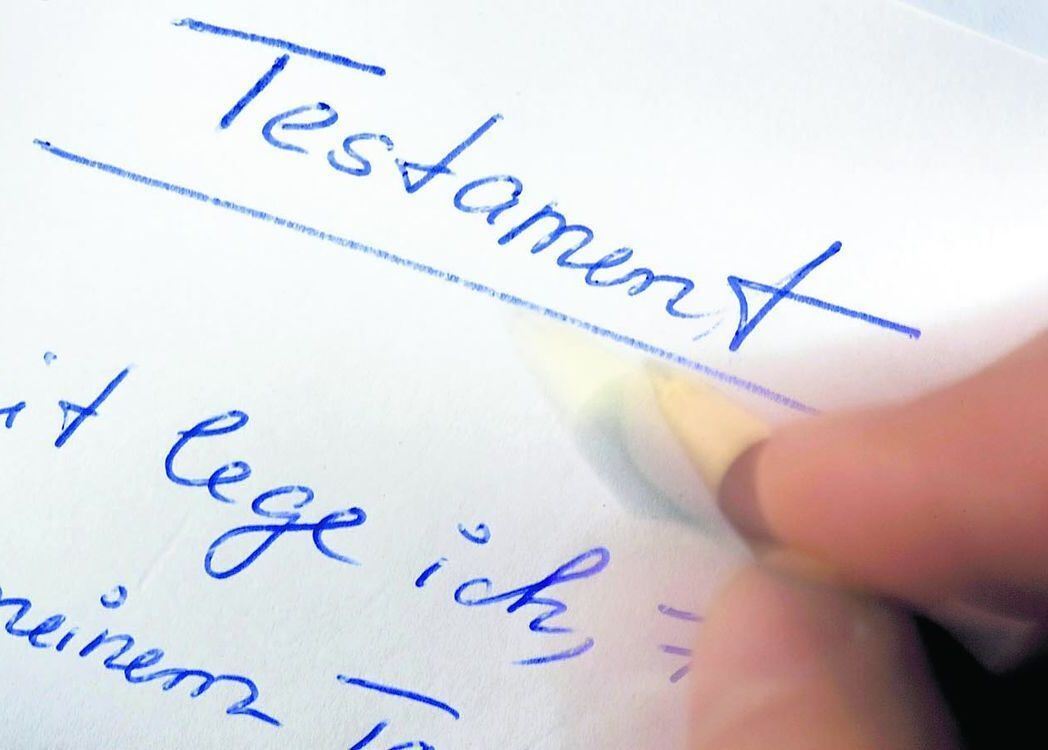 Testament
it lege ich,
meinem